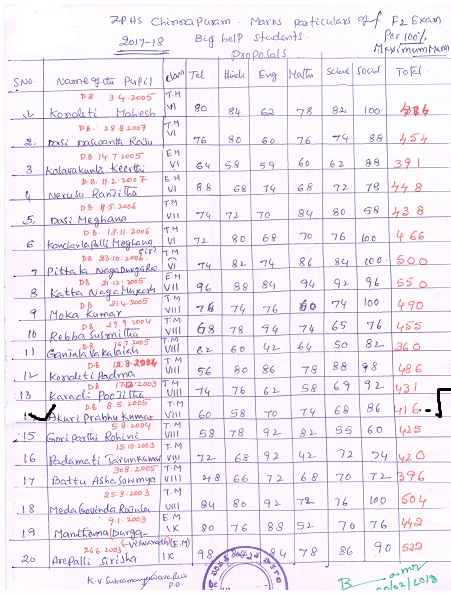 ZPHS Chinnapuram. Marks particulars of F2 Exam
2017-18 Big help students. Per 100%
Proposals Maximum Marks
S.No. Name of the Pupil class Tel Hindi Eng Maths Science Social Total
D.B 3.4.2005 T.M
1 Kondeti Mahesh VI 80 84 62 78 82 100 486
D.B. 28.8.2007 T.M
2. Dasi Jaswanth Raju VI 76 80 60 76 74 88 454
D.B 14.7.2005 E.M
3 Kalavakunta Keerthi VI 64 58 59 60 62 88 391
D.B. 11.2.2007 E.M
4 Nerusu Ranjitha VI 88 68 74 68 72 78 448
D.B 11.5.2006 T.M
5. Dasi Meghana VII 74 72 70 84 80 58 438
D.B. 13.11.2006 T.M
6 Kandarlapalli Meghana VI 72 80 68 70 76 100 466
D.B 23.10.2006 T.M
7 Pittala Naga Durga Rao 74 82 74 86 84 100 500
D.B 21.12.2005 E.M
8 Katta Naga VII 96 88 84 94 92 96 550
D.B 21.4.2005 T.M
9 Moka Kumar VIII 76 74 76 60 74 100 490
D.B 29.9.2004 T.M
10 Rebba Susmitha VIII 68 78 94 74 65 76 455
16.7.2005 T.M
11 VIII 62 60 42 64 50 82 360
T.M
12 Kondeti Padma VIII 56 80 86 78 88 98 486
D.B 2003 T.M
13 Karadi Poojitha VIII 74 76 62 58 69 92 431
D.B 8.5.2005 T.M
Akuri Prabhu Kumar VIII 60 58 70 74 68 86 416
5.8.2004 T.M
15 Goriparthi Rohini VIII 58 78 92 82 55 60 425
15.10.2003 T.M
16 Padamati Tarun Kumar VIII 72 68 92 42 72 74 420
30.8.2005 T.M
17 Battu Asha Sowmya VIII 48 66 72 68 70 72 396
25.8.2003 T.M
18 Meda Govinda VIII 84 80 92 72 76 100 504
9.1.2003 E.M
19 Durga IX 80 76 88 52 70 76 442
26.6.2003 (E.M)
20 Arepalli Sirisha IX 98 84 78 86 90 522
P.D.
20/02/2018